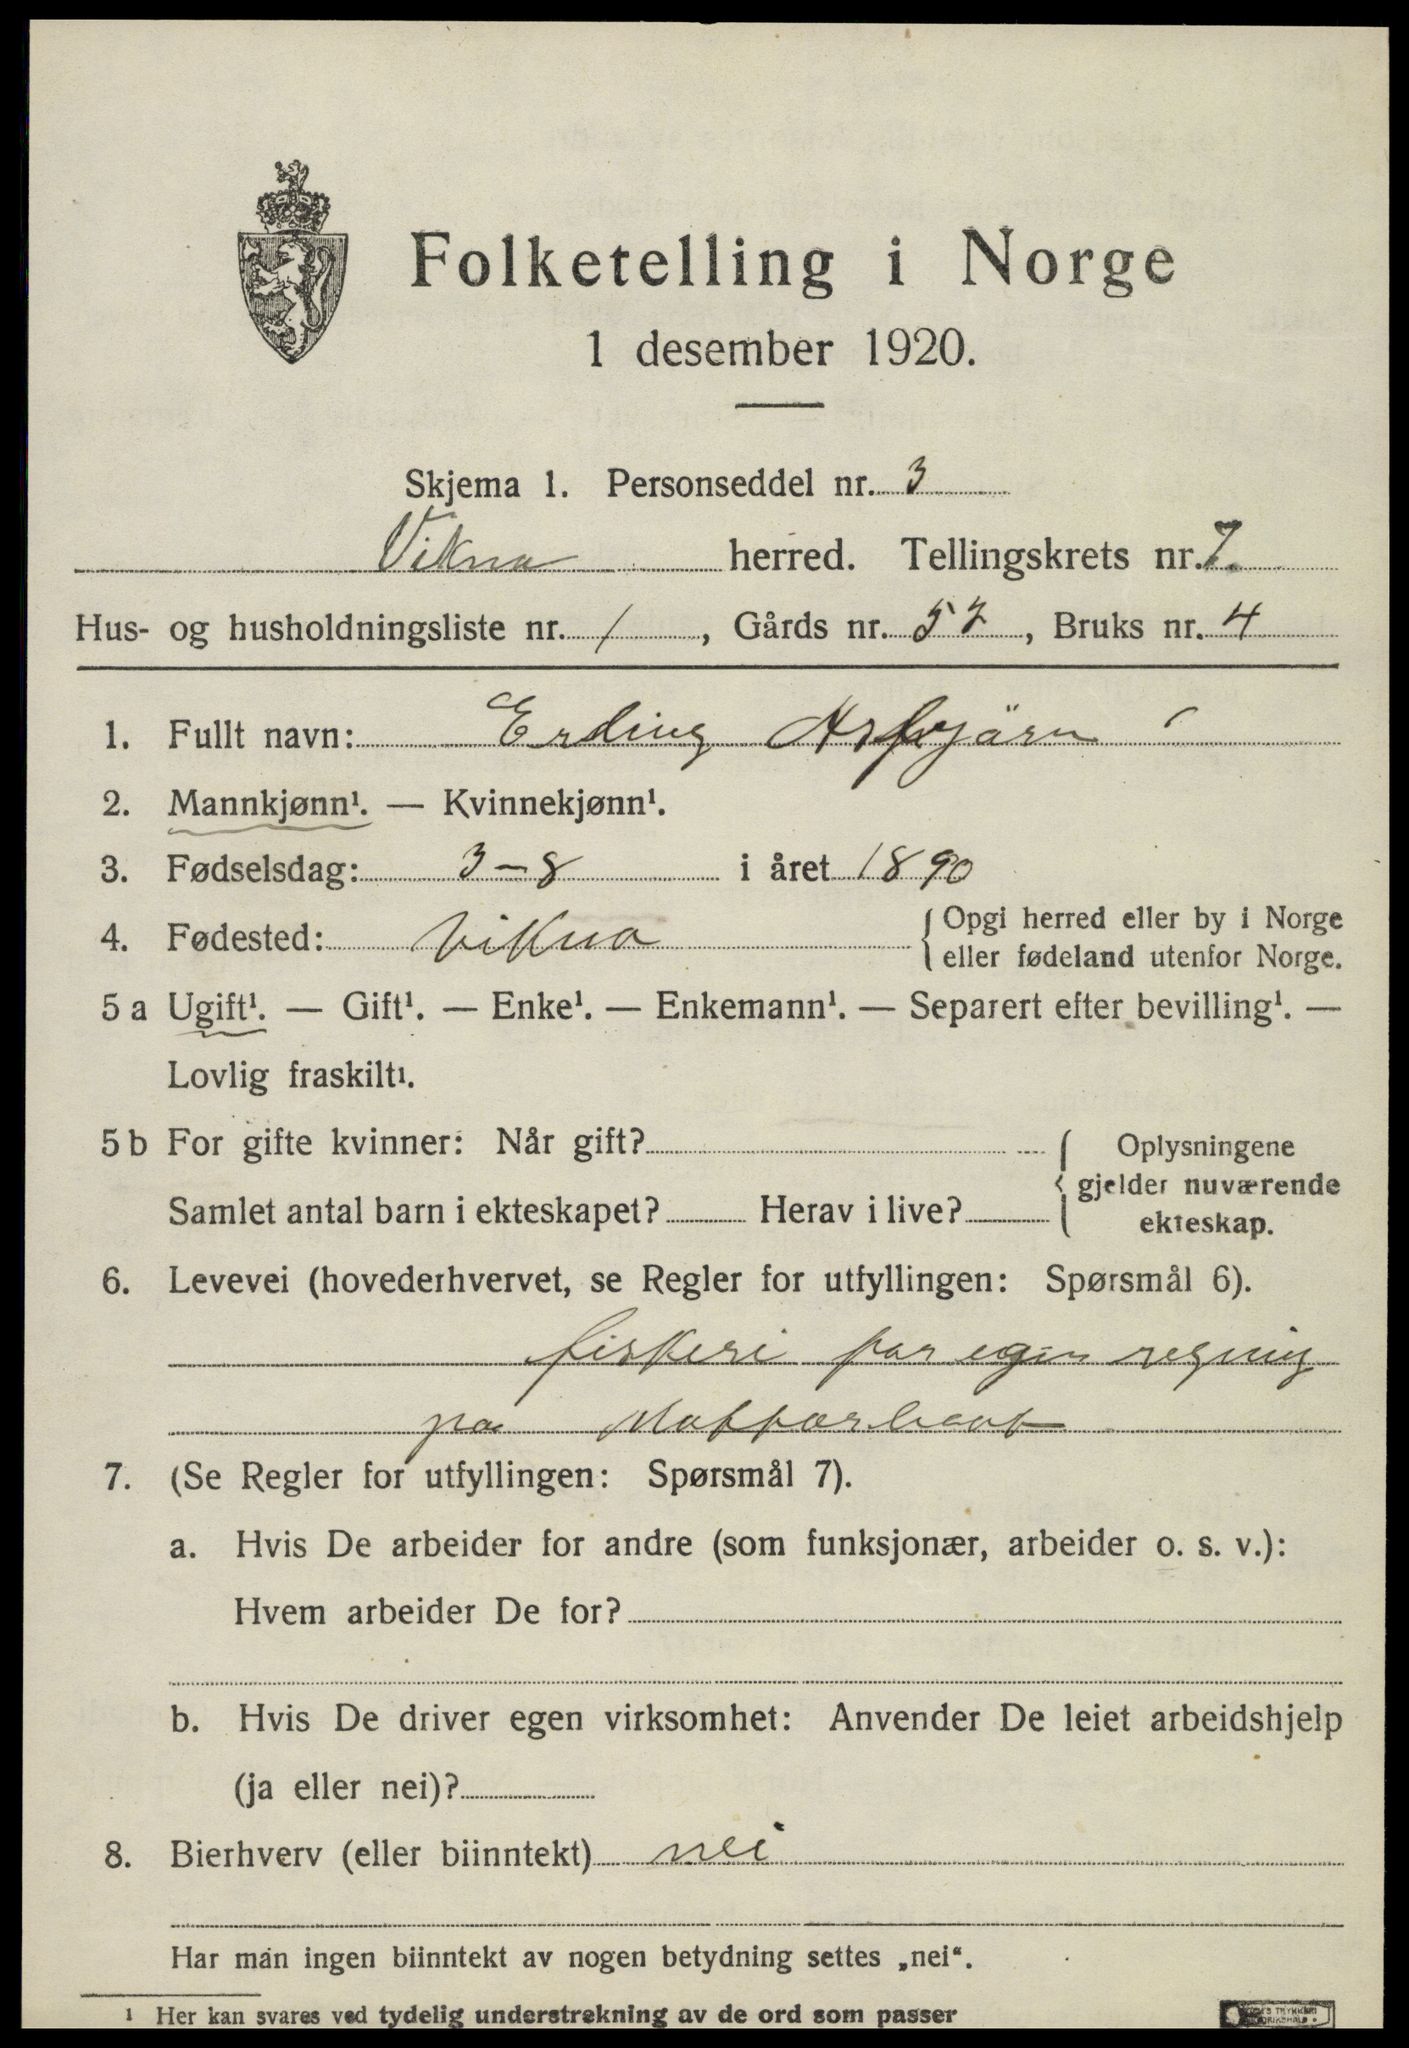 Folketelling i Norge
1 desember 1920.
Skjema 1. Personseddel nr. 3
Vikna herred. Tellingskrets nr. 7.
Hus- og husholdningsliste nr. 1, Gårds nr. 57, Bruks nr. 4
1. Fullt navn: Erling
2. Mannkjønn¹. — Kvinnekjønn¹.
3. Fødselsdag: 3-8 i året 1890
4. Fødested: Vikna { Opgi herred eller by i Norge
eller fødeland utenfor Norge.
5 a Ugift¹. — Gift¹. — Enke¹. — Enkemann¹. — Separert efter bevilling¹. —
Lovlig fraskilt¹.
5 b For gifte kvinner: Når gift? { Oplysningene
gjelder nuværende
Samlet antal barn i ekteskapet? Herav i live? ekteskap.
6. Levevei (hovederhvervet, se Regler for utfyllingen: Spørsmål 6).
fiskeri for egen regning
pa Mottorbaat
7. (Se Regler for utfyllingen: Spørsmål 7).
a. Hvis De arbeider for andre (som funksjonær, arbeider o. s. v.):
Hvem arbeider De for?
b. Hvis De driver egen virksomhet: Anvender De leiet arbeidshjelp
(ja eller nei)?
8. Bierhverv (eller biinntekt) nei
Har man ingen biinntekt av nogen betydning settes „nei“.
¹ Her kan svares ved tydelig understrekning av de ord som passer